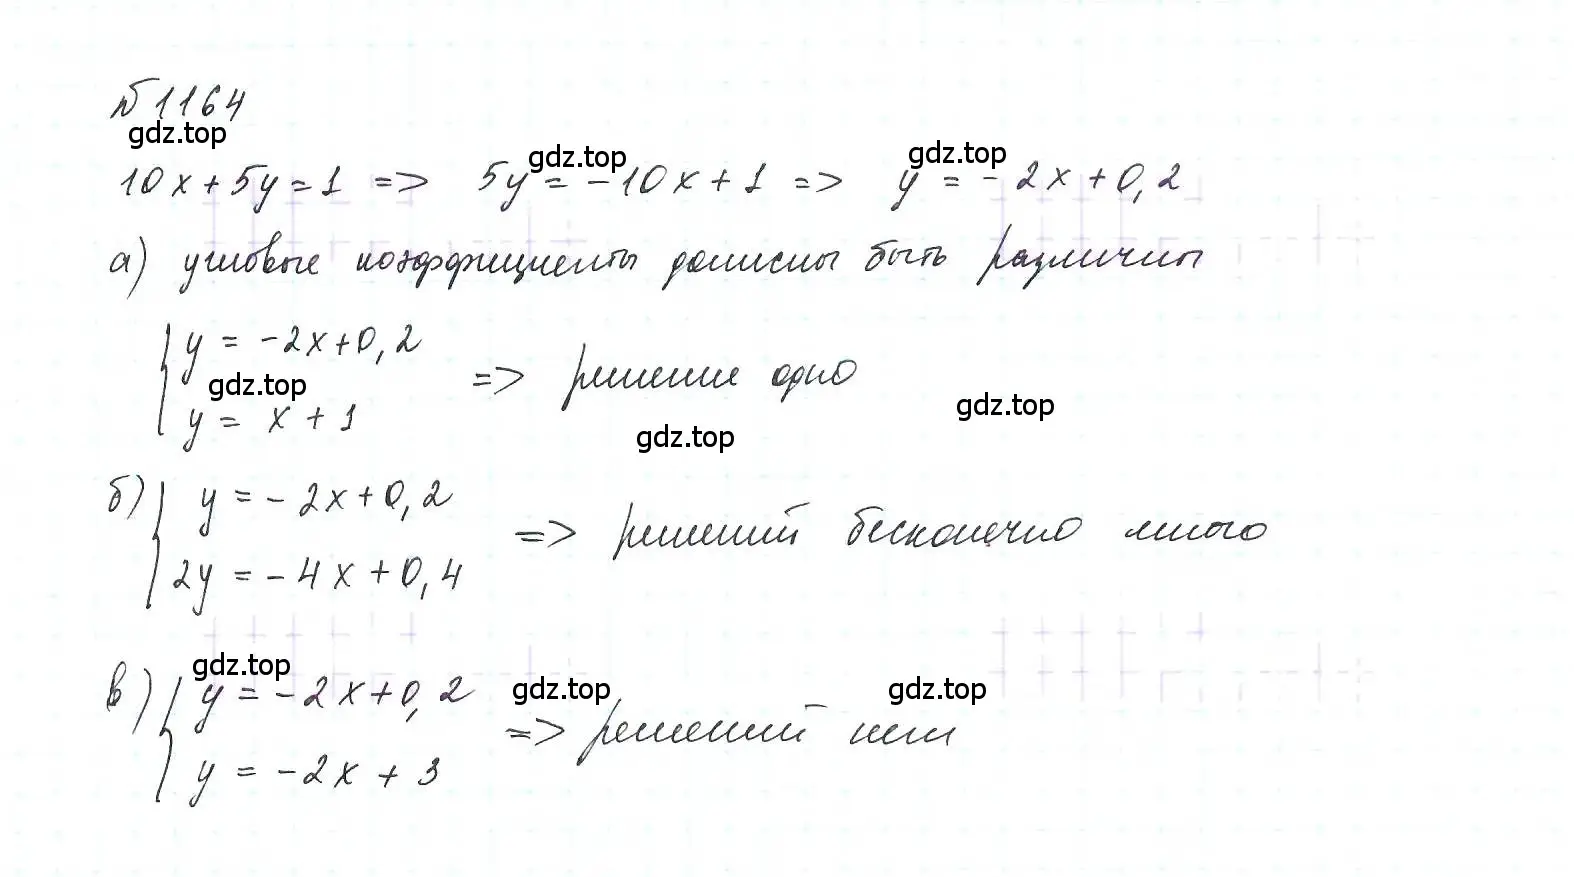 №1164
gdz.top
10x + 5y = 1 => 5y = -10x + 1 => y = -2x + 0,2
gdz.top
gdz.top
а) угловые коэффициенты должны быть различны
{ y = -2x + 0,2
gdz.top
y = x + 1
=> решение одно
gdz.top
gdz.top
б) { y = -2x + 0,2
2y = -4x + 0,4
=> решений бесконечно много
gdz.top
в) { y = -2x + 0,2
y = -2x + 3
gdz.top
gdz.top
=> решений нет